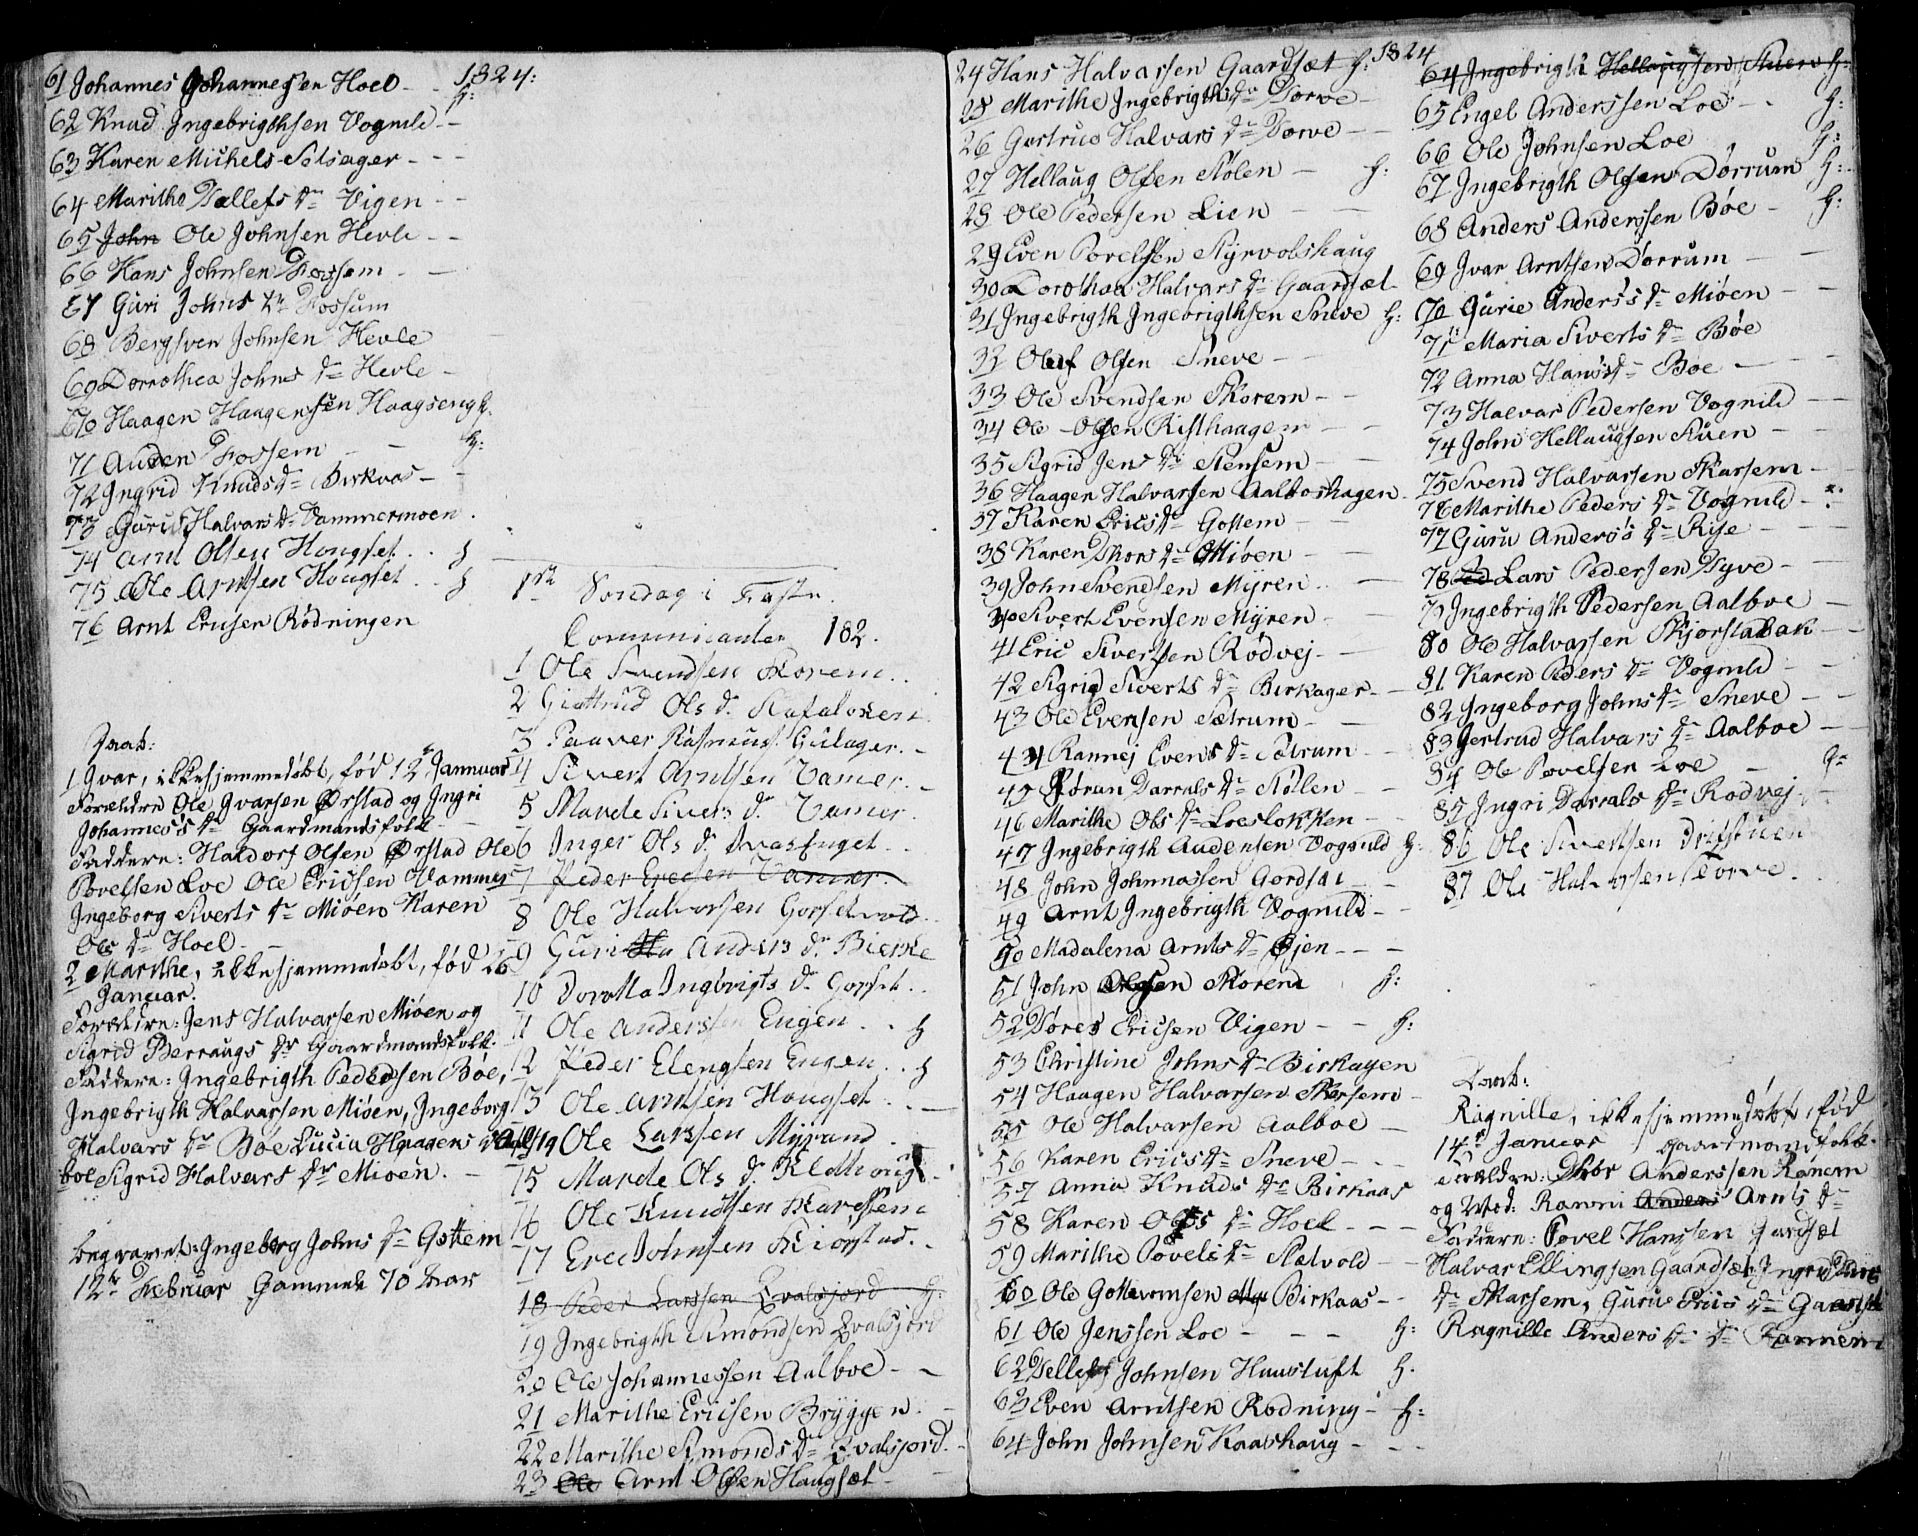 1824:
61 Johannes Johannesen Hoel - - h:
62 Knud Ingebrigthsen Vognild - -
63 Karen Michels Solsager - - -
64 Marithe Tollefs dr Vigen - -
65 John Ole Johnsen Hevle - -
66 Hans Johnsen Fossem - -
67 Guri Johns dr Fossum
68 Bergsven Johnsen Hevle
69 Dorrothea Johns dr Hevle -
70 Haagen Haagenssen Haagseng h.
71 Auden Fossem - - h:
72 Ingrid Knuds dr Birkaas -
73 Guri Halvars dr Vammermoen .
74 Arnt Olsen Hougset . . h
75 Ole Arntsen Hougset . . h
76 Arnt Ericsen Rødningen
Daab:
1 Ivar, ikkehjemmedøbt, fød 12te Jannuar
Forældre Ole Ivarsen Ørstad og Ingri
Johannes's dr Gaardmandsfolk
Faddere: Haldorf Olsen Ørstad Ole
Povelsen Loe Ole Ericsen Vammer
Ingeborg Siverts dr Miøen Karen
Ols dr Hoel - -
2 Marithe, ikkehjemmedøbt, fød 26
Januar.
Forældre: Jens Halvarsen Miøen og
Sigrid Berraugs dr Gaardmandsfolk.
Faddere: Ingebrigth Pedersen Bøe,
Ingebrigth Halvarsen Miøen, Ingeborg
Halvars dr Bøe Lucia Haagens dr Aal
boe Sigrid Halvars dr Miøen. -
Begravet: Ingeborg Johns dr Gottem
12te Februar Gammel 70 Aar
1ste Søndag i Faste.
Communicanter 182.
1 Ole Svendsen Skorem . .
2 Giøttrud Ols dr
3 Paaver Rasmus. Gulager. -
4 Sivert Arntsen Vamer. -
5 Marde Sivers dr Vamer.
6 Inger Ols dr
7 Peder Ericsen Vamer.
8 Ole Halvorsen
9 Guri Anders dr Bierke
10 Dorotta Ingbrigts dr Gorset . .
11 Ole Anderssen Engen . . h
12 Peder Elengsen Engen . . h
13 Ole Arntsen Hougset . . -
14 Ole Larsen Myrand .
15 Marde Ols dr
16 Ole Knudsen
17 Eric Johnsen Skiørstad . -
18 Peder Larssen Qvalsjord h:
19 Ingebrigth Amondsen Qvalsjord
20 Ole Johannessen Aalboe - -
21 Marithe Ericsen Bryggen . -
22 Marithe Amonds dr Qvalsjord. -
23 Ole Arnt Olsen Haugsæt -
1824
24 Hans Halvarsen Gaardsæt h:
25 Marithe Ingebrigths dr Torve -
26 Gertrud Halvars dr Torve - -
27 Hellaug Olsen Stølen - h:
28 Ole Pedersen Lien - -
29 Even Povelsen Styrvolshaug
30 Dorothea Halvars dr Gaardsæt
31 Ingebrigth Ingebrigthsen Sneve h:
32 Oluf Olsen Sneve - -
33 Ole Svendsen Skorem - -
34 Ole Olsen Risthaagen - -
35 Sigrid Jens dr Stensem - -
36 Haagen Halvarsen Aalboshagen -
37 Karen Erics dr Gottem - -
38 Karen Thors dr Miøen - -
39 John Svendsen Myren - -
40 Sivert Evensen Myren -
41 Eric Sivertsen Rødvej - -
42 Sigrid Siverts dr Birkager -
43 Ole Evensen Sætrum - -
44 Rannej Evens dr Sætrum - -
45 Jøran Darrals dr Stølen - -
46 Marithe Ols dr Loesløkken - -
47 Ingebrigth Audensen Vognild h:
48 John Johnnassen Gordset
49 Arnt Ingebrigth Vognild - -
50 Madalena Arnts dr Øjen - - -
51 John Olsen Skorem h:
52 Tores Ericsen Vigen - - h:
53 Christine Johns dr Birkagen
54 Haagen Halvarsen Skarsem -
55 Ole Halvarsen Aalboe - -
56 Karen Erics dr Sneve - - -
57 Anna Knuds dr Birkaas
58 Karen Ols dr Hoel - - -
59 Marithe Povels dr Slætvold - -
60 Ole Gottormsen Birkaas - -
61 Ole Jenssen Loe - - - h:
62 Tellef Johnsen Huusluft h.
63 Even Arntsen Rødning - h:
64 John Johnsen Kaashaug - - -
64 Ingebrigth Hellaugsen Stuen h:
65 Engel Anderssen Loe - . h:
66 Ole Johnsen Loe h:
67 Ingebrigth Olsen Dørrum h:
68 Anders Anderssen Bøe - h:
69 Ivar Arntsen Dørrum - -
70 Gurie Anders's dr Miøen - -
71 Maria Siverts dr Bøe
72 Anna Hans's dr Bøe - -
73 Halvar Pedersen Vognild - -
74 John Hellaugsen Stuen - -
75 Svend Halvarsen Skarsem - -
76 Marithe Peders dr Vognild - -
77 Guru Anders's dr Rise - - -
78 Ped Lars Pedersen Tyve - -
79 Ingebrigth Pedersen Aalboe -
80 Ole Halvarsen Skjørstabak - -
81 Karen Peders dr Vognild - -
82 Ingeborg Johns dr Sneve - -
83 Gertrud Halvars dr Aalboe -
84 Ole Povelsen Loe - h:
85 Ingri Darrals dr Rødvej -
86 Ole Sivertsen Drifstuen
87 Ole Halvorsen Torve .
Daab:
Ragnille, ikkehjemmedøbt, fød
14de Januar Gaardmandsfolk.
Forældre: Thor Anderssen Ranem
og Mod: Ranni Anders Arnts dr
Faddere: Povel Hanssen Gardsæt
Halvar Ellingsen Gaardsæt Ingri
dr Skarsem, Guru Erics dr Gaardsæt
Ragnille Anders dr Rannem